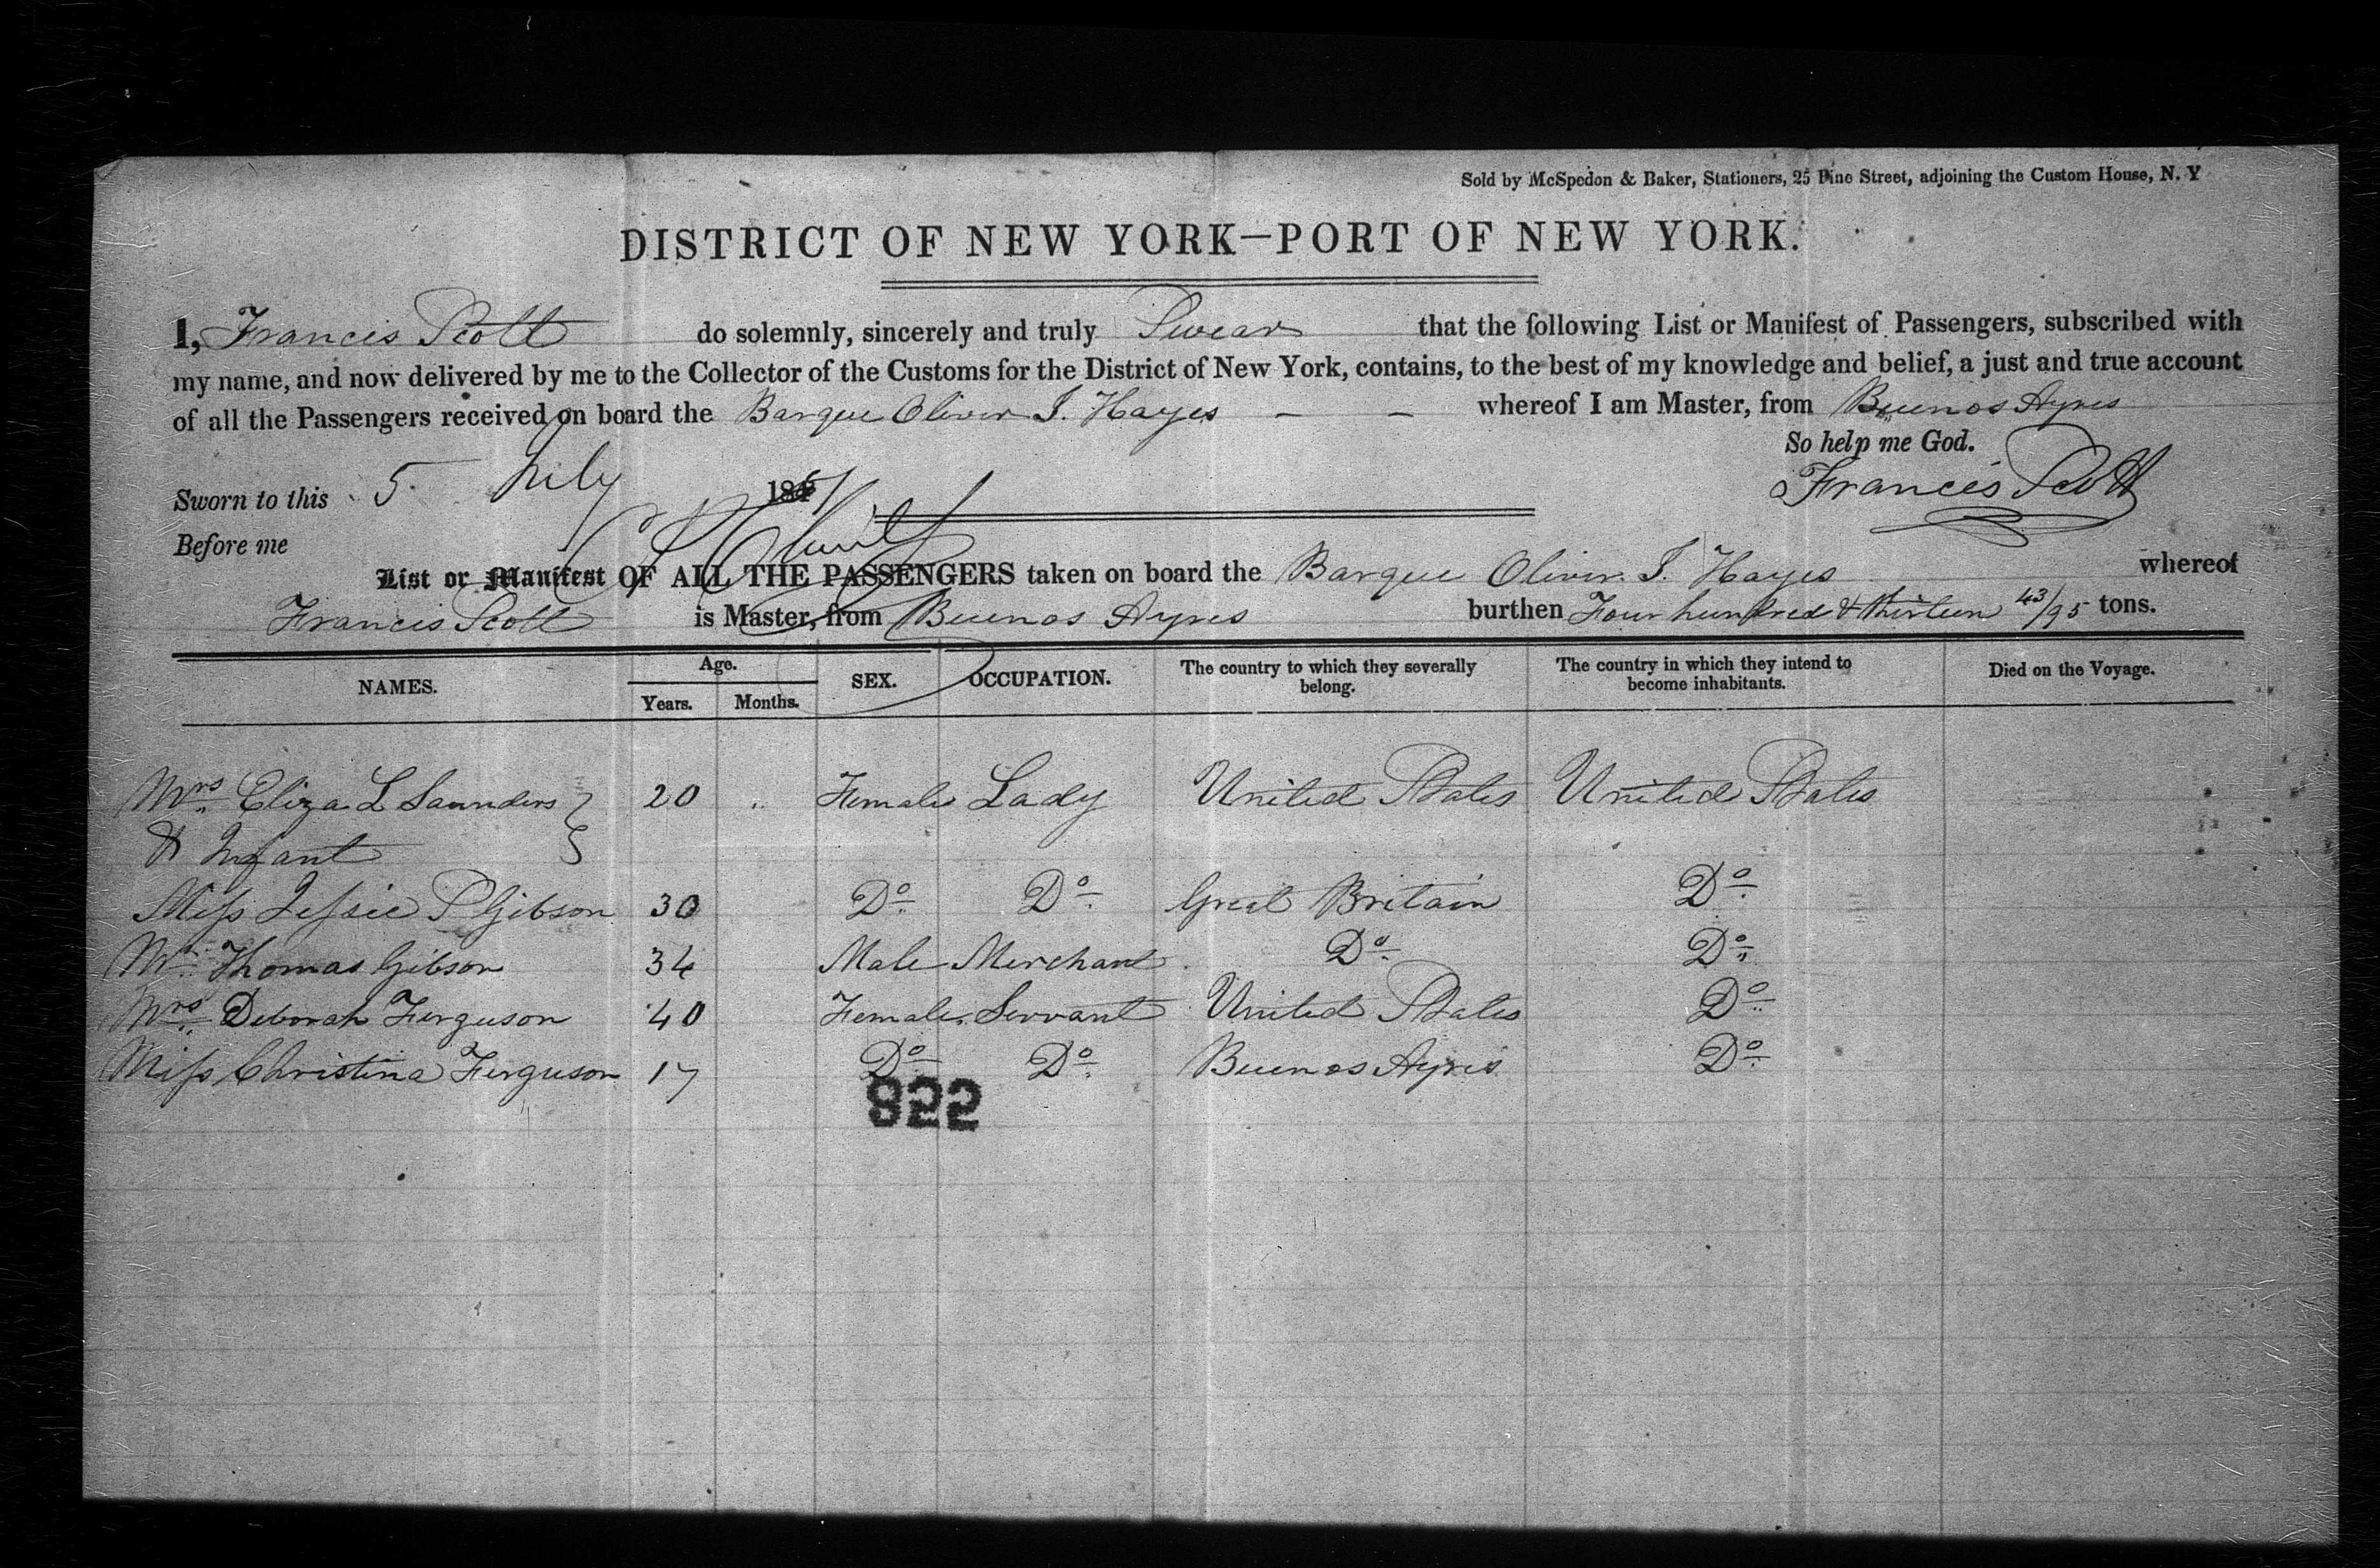 Sold by McSpedon & Baker, Stationers, 25 Pine Street, adjoining the Custom House, N. Y
DISTRICT OF NEW YORK—PORT OF NEW YORK.
I, Francis Scott do solemnly, sincerely and truly Swear that the following List or Manifest of Passengers, subscribed with
my name, and now delivered by me to the Collector of the Customs for the District of New York, contains, to the best of my knowledge and belief, a just and true account
of all the Passengers received on board the Barque Oliver J. Hayes — — whereof I am Master, from Buenos Ayres
So help me God.
Sworn to this 5 July 1851 Francis Scott
Before me
List or Manifest OF ALL THE PASSENGERS taken on board the Barque Oliver J. Hayes whereof
Francis Scott is Master, from Buenos Ayres burthen Four hundred & thirteen 43/95 tons.
NAMES. Age. Years. Months. SEX. OCCUPATION. The country to which they severally belong. The country in which they intend to become inhabitants. Died on the Voyage.
Mrs Eliza L Saunders 20 " Female Lady United States United States
& Infant
Miss Jessie P Gibson 30 Do Do Great Britain Do
Mr Thomas Gibson 34 Male Merchant Do Do
Mrs Deborah Ferguson 40 Female Servant United States Do
Miss Christina Ferguson 17 Do Do Buenos Ayres Do
822